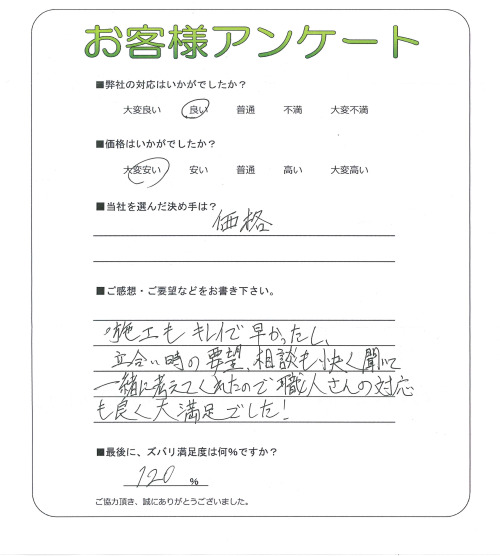 お客様アンケート
■弊社の対応はいかがでしたか？
大変良い 良い 普通 不満 大変不満
■価格はいかがでしたか？
大変安い 安い 普通 高い 大変高い
■当社を選んだ決め手は？
価格
■ご感想・ご要望などをお書き下さい。
・施工もキレイで早かったし、
立合い時の要望、相談も快く聞いて
一緒に考えてくれたので職人さんの対応
も良く大満足でした！
■最後に、ズバリ満足度は何％ですか？
120 ％
ご協力頂き、誠にありがとうございました。